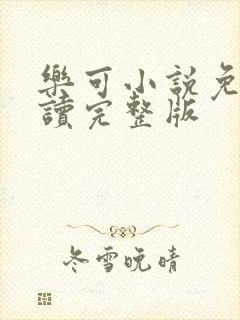 樂可小說免
讀完整版
冬雪晚晴